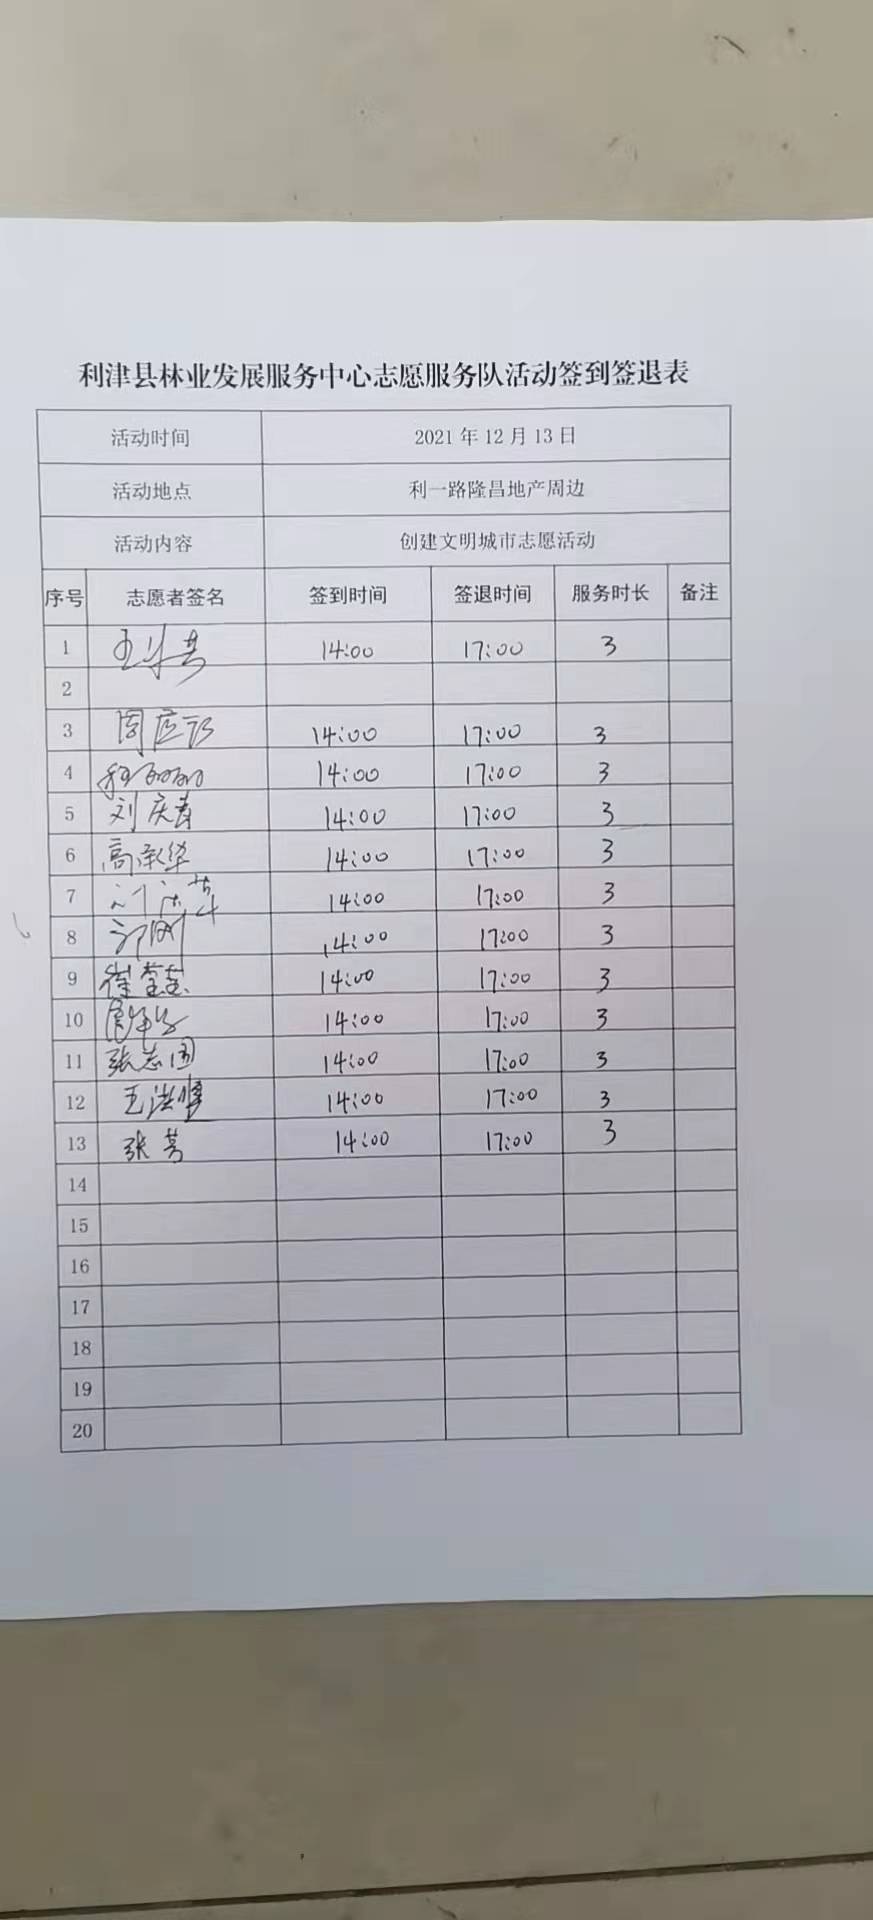 利津县林业发展服务中心志愿服务队活动签到签退表
活动时间 2021年12月13日
活动地点 利一路隆昌地产周边
活动内容 创建文明城市志愿活动
序号 志愿者签名 签到时间 签退时间 服务时长 备注
1 14:00 17:00 3
2
3 14:00 17:00 3
4 14:00 17:00 3
5 刘庆春 14:00 17:00 3
6 高承华 14:00 17:00 3
7 14:00 17:00 3
8 14:00 17:00 3
9 14:00 17:00 3
10 14:00 17:00 3
11 张志国 14:00 17:00 3
12 14:00 17:00 3
13 张芳 14:00 17:00 3
14
15
16
17
18
19
20